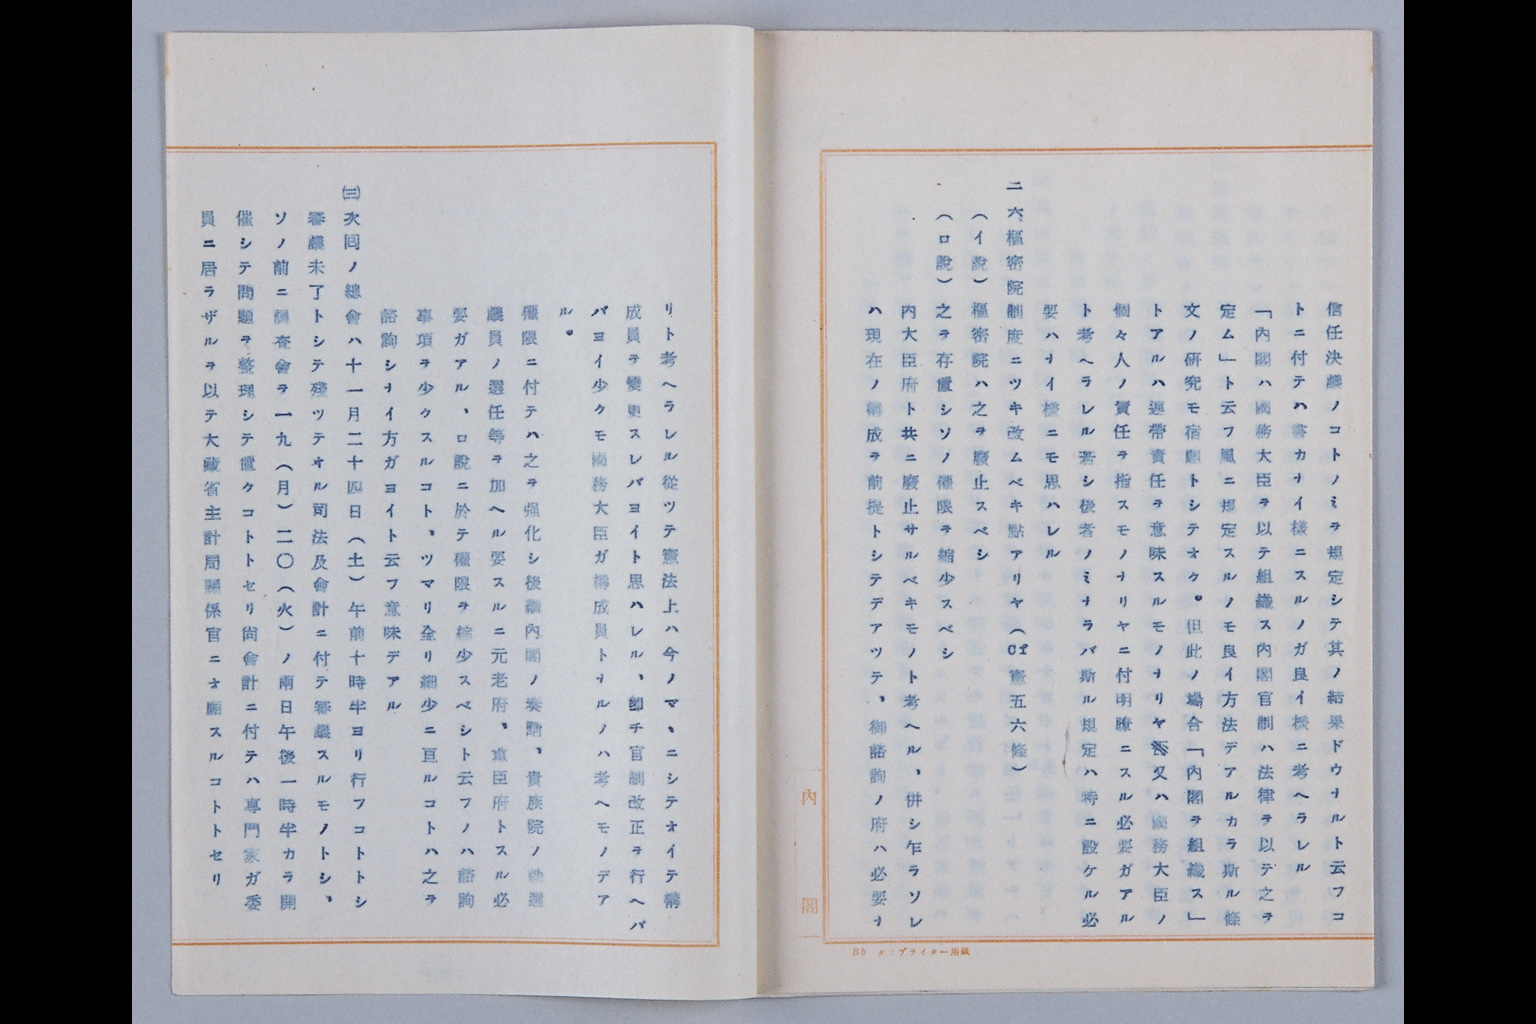 信任決議ノコトノミヲ規定シテ其ノ結果ドウナルト云フコ
トニ付テハ書カナイ様ニスルノガ良イ様ニ考ヘラレル
「內閣ハ國務大臣ヲ以テ組織ス內閣官制ハ法律ヲ以テ之ヲ
定ム」ト云フ風ニ規定スルノモ良イ方法デアルカラ斯ル條
文ノ硏究モ宿題トシテオク。但此ノ場合「內閣ヲ組織ス」
トアルハ連帶責任ヲ意味スルモノナリヤ又ハ國務大臣ノ
個々人ノ責任ヲ指スモノナリヤニ付明瞭ニスル必要ガアル
ト考ヘラレル若シ後者ノミナラバ斯ル規定ハ特ニ設ケル必
要ハナイ樣ニモ思ハレル
二六、樞密院制度ニツキ改ムベキ點アリヤ（Cf 憲五六條）
（イ說）樞密院ハ之ヲ廢止スベシ
（ロ說）之ヲ存置シソノ權限ヲ縮少スベシ
內大臣府ト共ニ廢止サルベキモノト考ヘル、併シ乍ラソレ
ハ現在ノ構成ヲ前提トシテデアツテ、御諮詢ノ府ハ必要ナ
內閣
B5 タイプライター用紙
リト考ヘラレル從ツテ憲法上ハ今ノマヽニシテオイテ構
成員ヲ變更スレバヨイト思ハレル、卽チ官制改正ヲ行ヘバ
バヨイ少クモ國務大臣ガ構成員トナルノハ考ヘモノデア
ル。
權限ニ付テハ之ヲ强化シ後繼內閣ノ奏請、貴族院ノ勅選
議員ノ選任等ヲ加ヘル要スルニ元老府、重臣府トスル必
要ガアル、ロ說ニ於テ權限ヲ縮少スベシト云フノハ諮詢
事項ヲ少クスルコト、ツマリ余リ細少ニ亘ルコトハ之ヲ
諮詢シナイ方ガヨイト云フ意味デアル
㈢次囘ノ總會ハ十一月二十四日（土）午前十時半ヨリ行フコトトシ
審議未了トシテ殘ツテオル司法及會計ニ付テ審議スルモノトシ、
ソノ前ニ調査會ヲ一九（月）二〇（火）ノ兩日午後一時半カラ開
催シテ問題ヲ整理シテ置クコトトセリ尙會計ニ付テハ專門家ガ委
員ニ居ラザルヲ以テ大藏省主計局關係官ニオ願スルコトトセリ